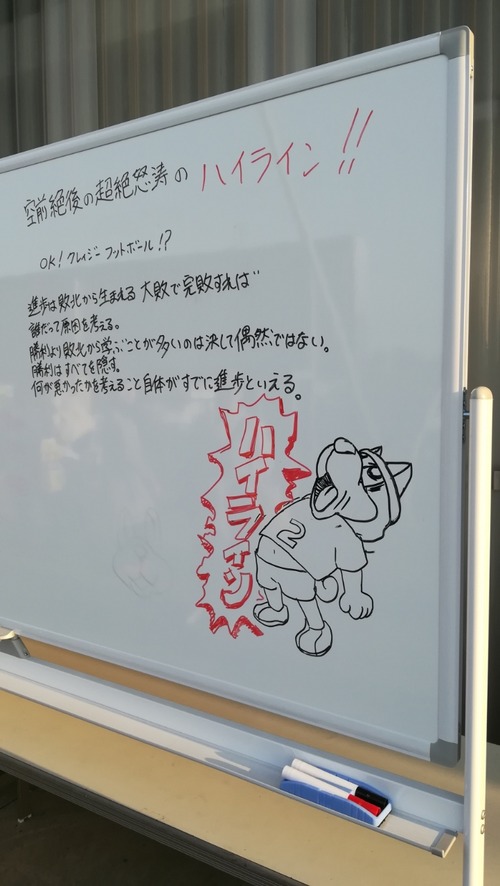 空前絶後の超絶怒涛のハイライン!!
OK!クレイジーフットボール!?
進歩は敗北から生まれる大敗で完敗すれば
誰だって原因を考える。
勝利より敗北から学ぶことが多いのは決して偶然ではない。
勝利はすべてを隠す。
何が悪かったかを考えること自体がすでに進歩といえる。
ハイライン
2